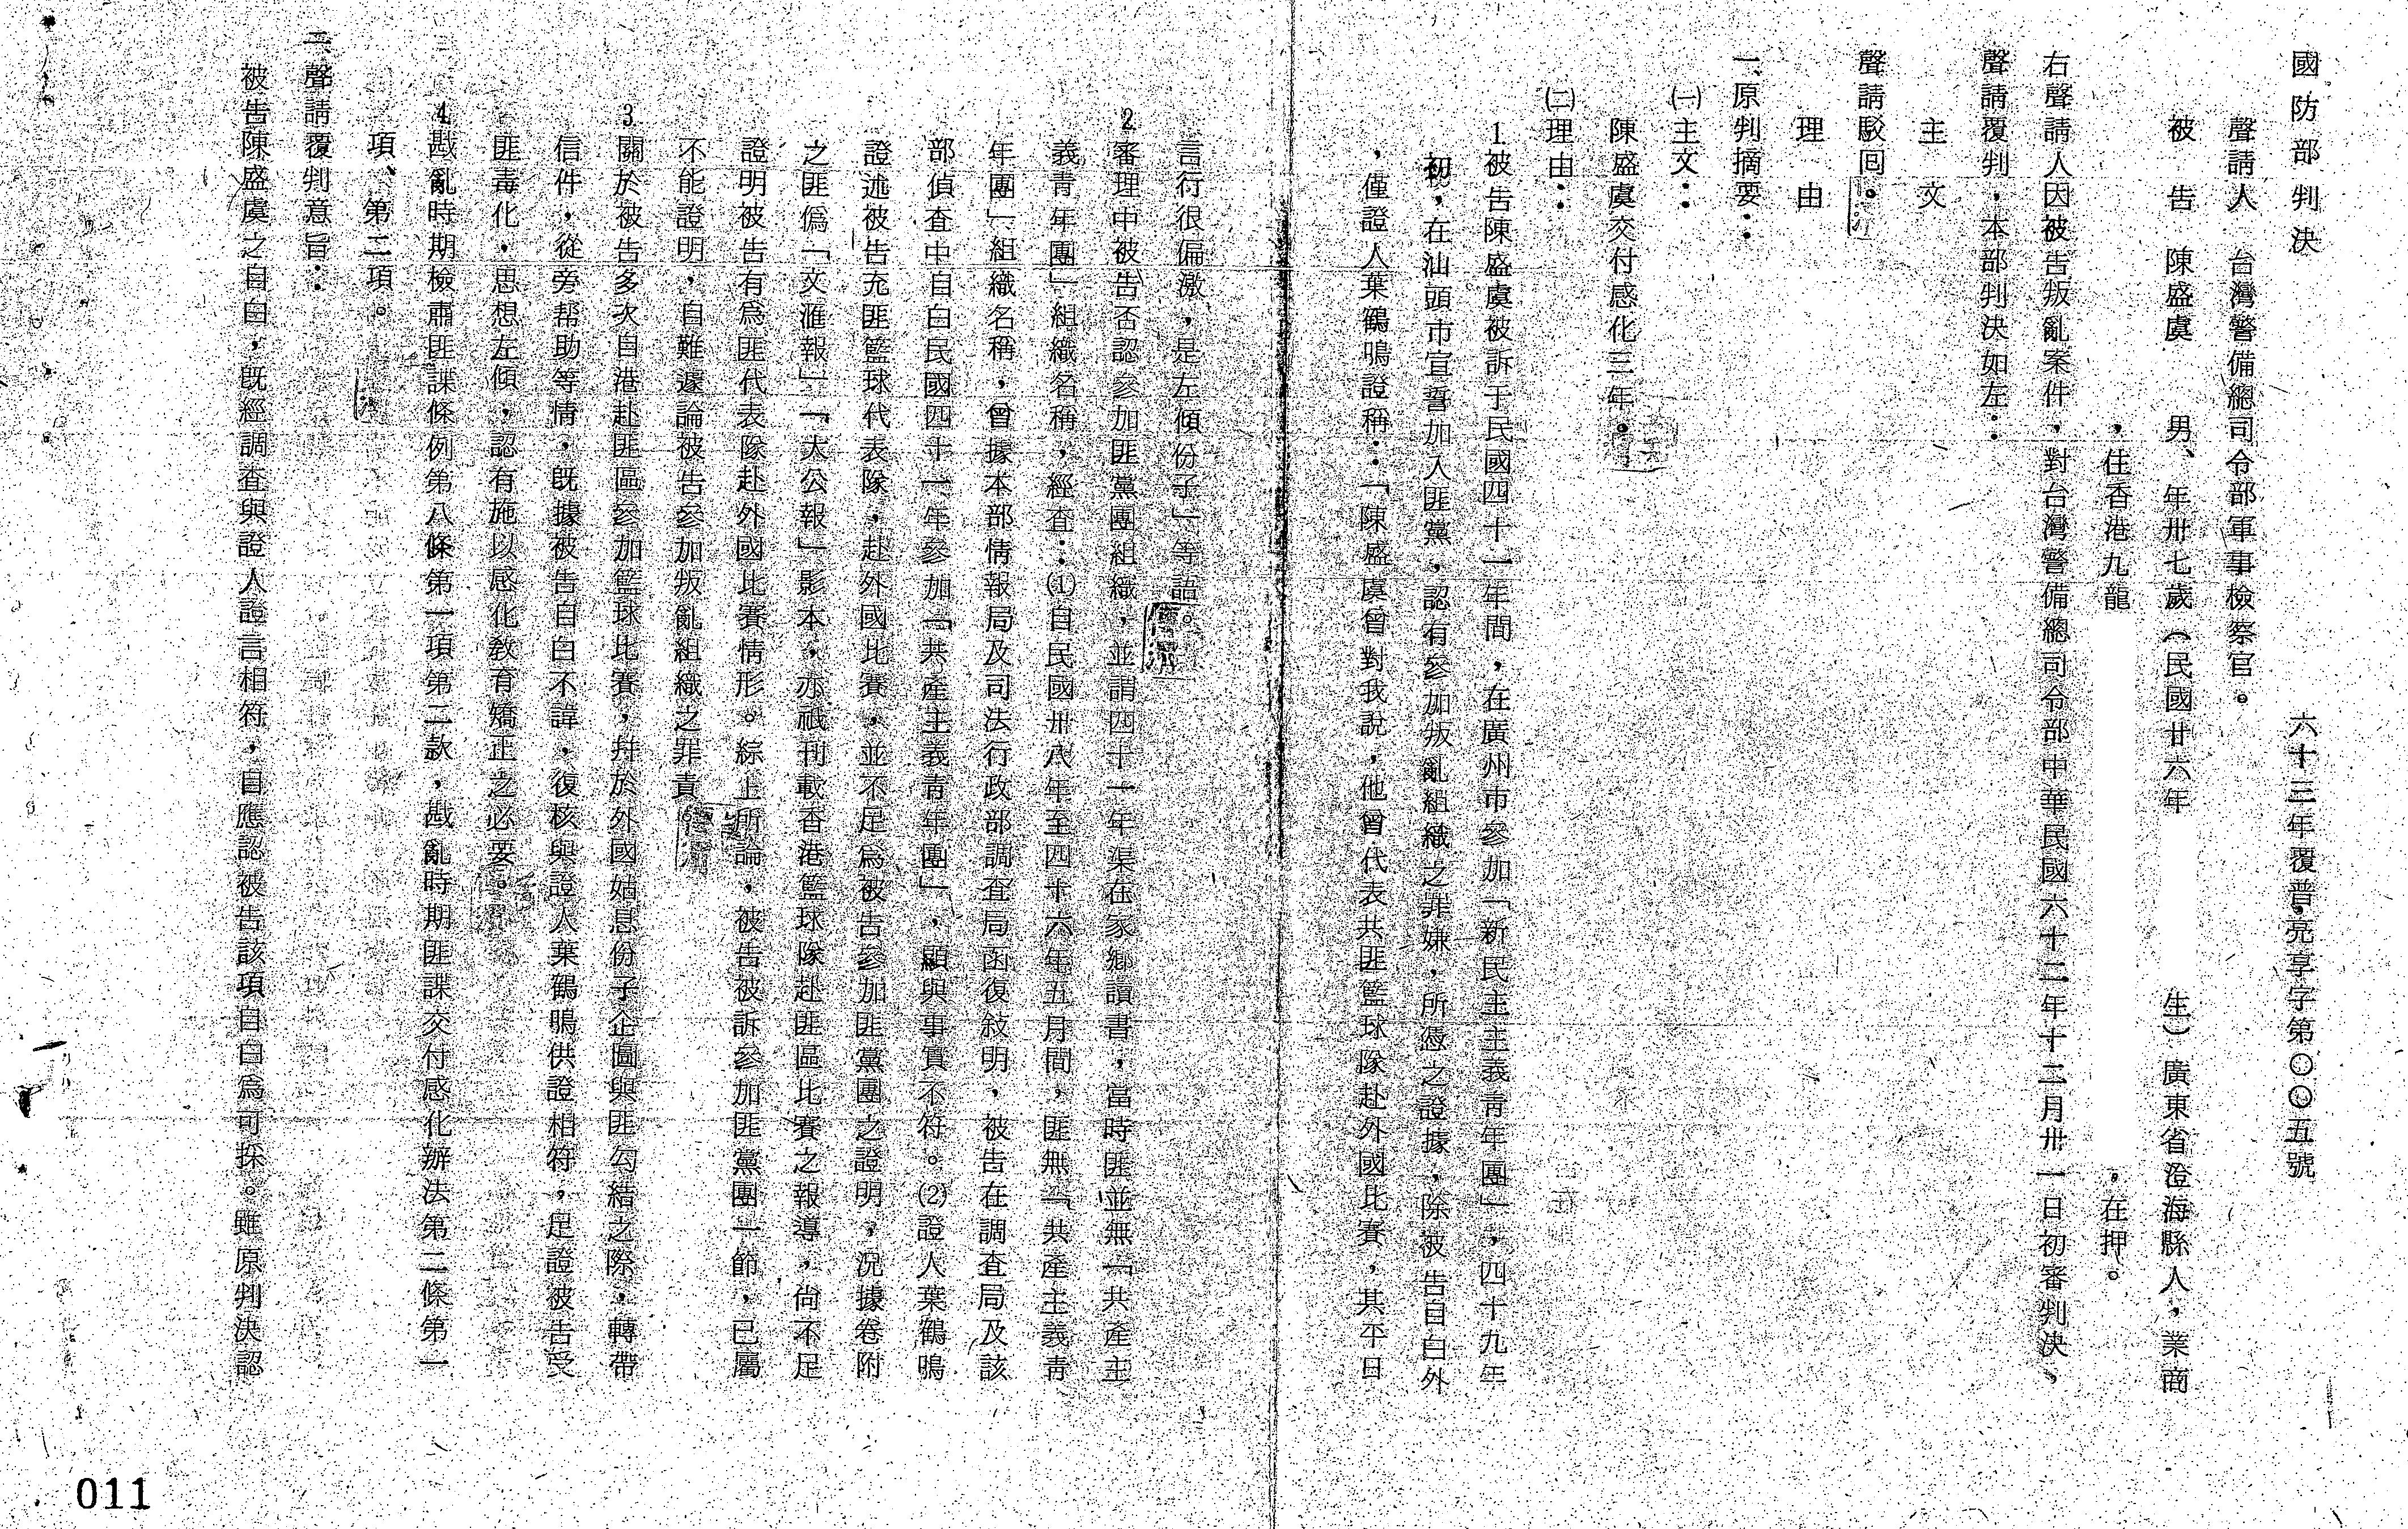 國防部判決　六十三年覆普亮享字第〇〇五號
聲請人　台灣警備總司令部軍事檢察官。
被告　陳盛虞　男、年卅七歲（民國廿六年　生）廣東省澄海縣人，業商
，住香港九龍　。在押。
右聲請人因被告叛亂案件，對台灣警備總司令部中華民國六十二年十二月卅一日初審判決，
聲請覆判，本部判決如左：
主文
聲請駁回。
理由
一、原判摘要：
㈠主文：
陳盛虞交付感化三年。
㈡理由：
1.被告陳盛虞被訴于民國四十一年間，在廣州市參加「新民主主義青年團」，四十九年
初，在汕頭市宣誓加入匪黨，認有參加叛亂組織之罪嫌，所憑之證據，除被告自白外
，僅證人葉鶴鳴證稱：「陳盛虞曾對我說，他曾代表共匪籃球隊赴外國比賽，其平日
言行很偏激，是左傾份子」等語。
2.審理中被告否認參加匪黨團組織，並謂四十一年渠在家鄉讀書，當時匪並無「共產主
義青年團」組織名稱，經查：⑴自民國卅八年至四十六年五月間，匪無「共產主義青
年團」組織名稱，曾據本部情報局及司法行政部調查局函復敍明，被告在調查局及該
部偵查中自白民國四十一年參加「共產主義青年團」，顯與事實不符。⑵證人葉鶴鳴
證述被告充匪籃球代表隊，赴外國比賽，並不足為被告參加匪黨團之證明，況據卷附
之匪偽「文滙報」「大公報」影本，亦祗刊載香港籃球隊赴匪區比賽之報導，尚不足
證明被告有為匪代表隊赴外國比賽情形。綜上所論，被告被訴參加匪黨團一節，已屬
不能證明，自難遽論被告參加叛亂組織之罪責
3.關於被告多次自港赴匪區參加籃球比賽，并於外國姑息份子企圖與匪勾結之際，轉帶
信件，從旁帮助等情，既據被告自白不諱，復核與證人葉鶴鳴供證相符，足證被告受
匪毒化，思想左傾，認有施以感化教育矯正之必要。
4.戡亂時期檢肅匪諜條例第八條第一項第二款，戡亂時期匪諜交付感化辦法第二條第一
項、第二項。
二、聲請覆判意旨：
被告陳盛虞之自白，既經調查與證人證言相符，自應認被告該項自白為可採。雖原判決認
011